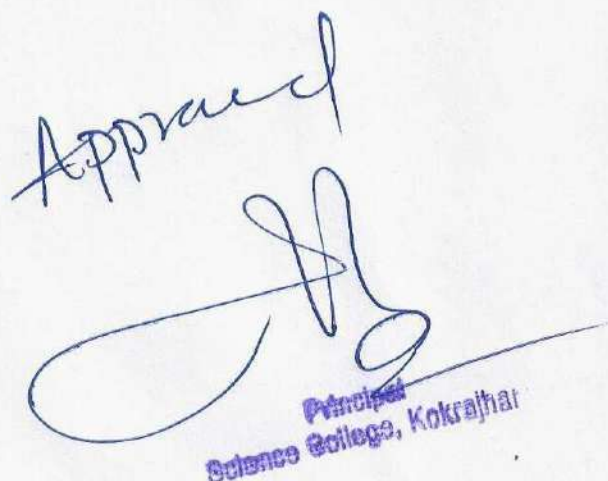 Approved
Principal
Science College, Kokrajhar